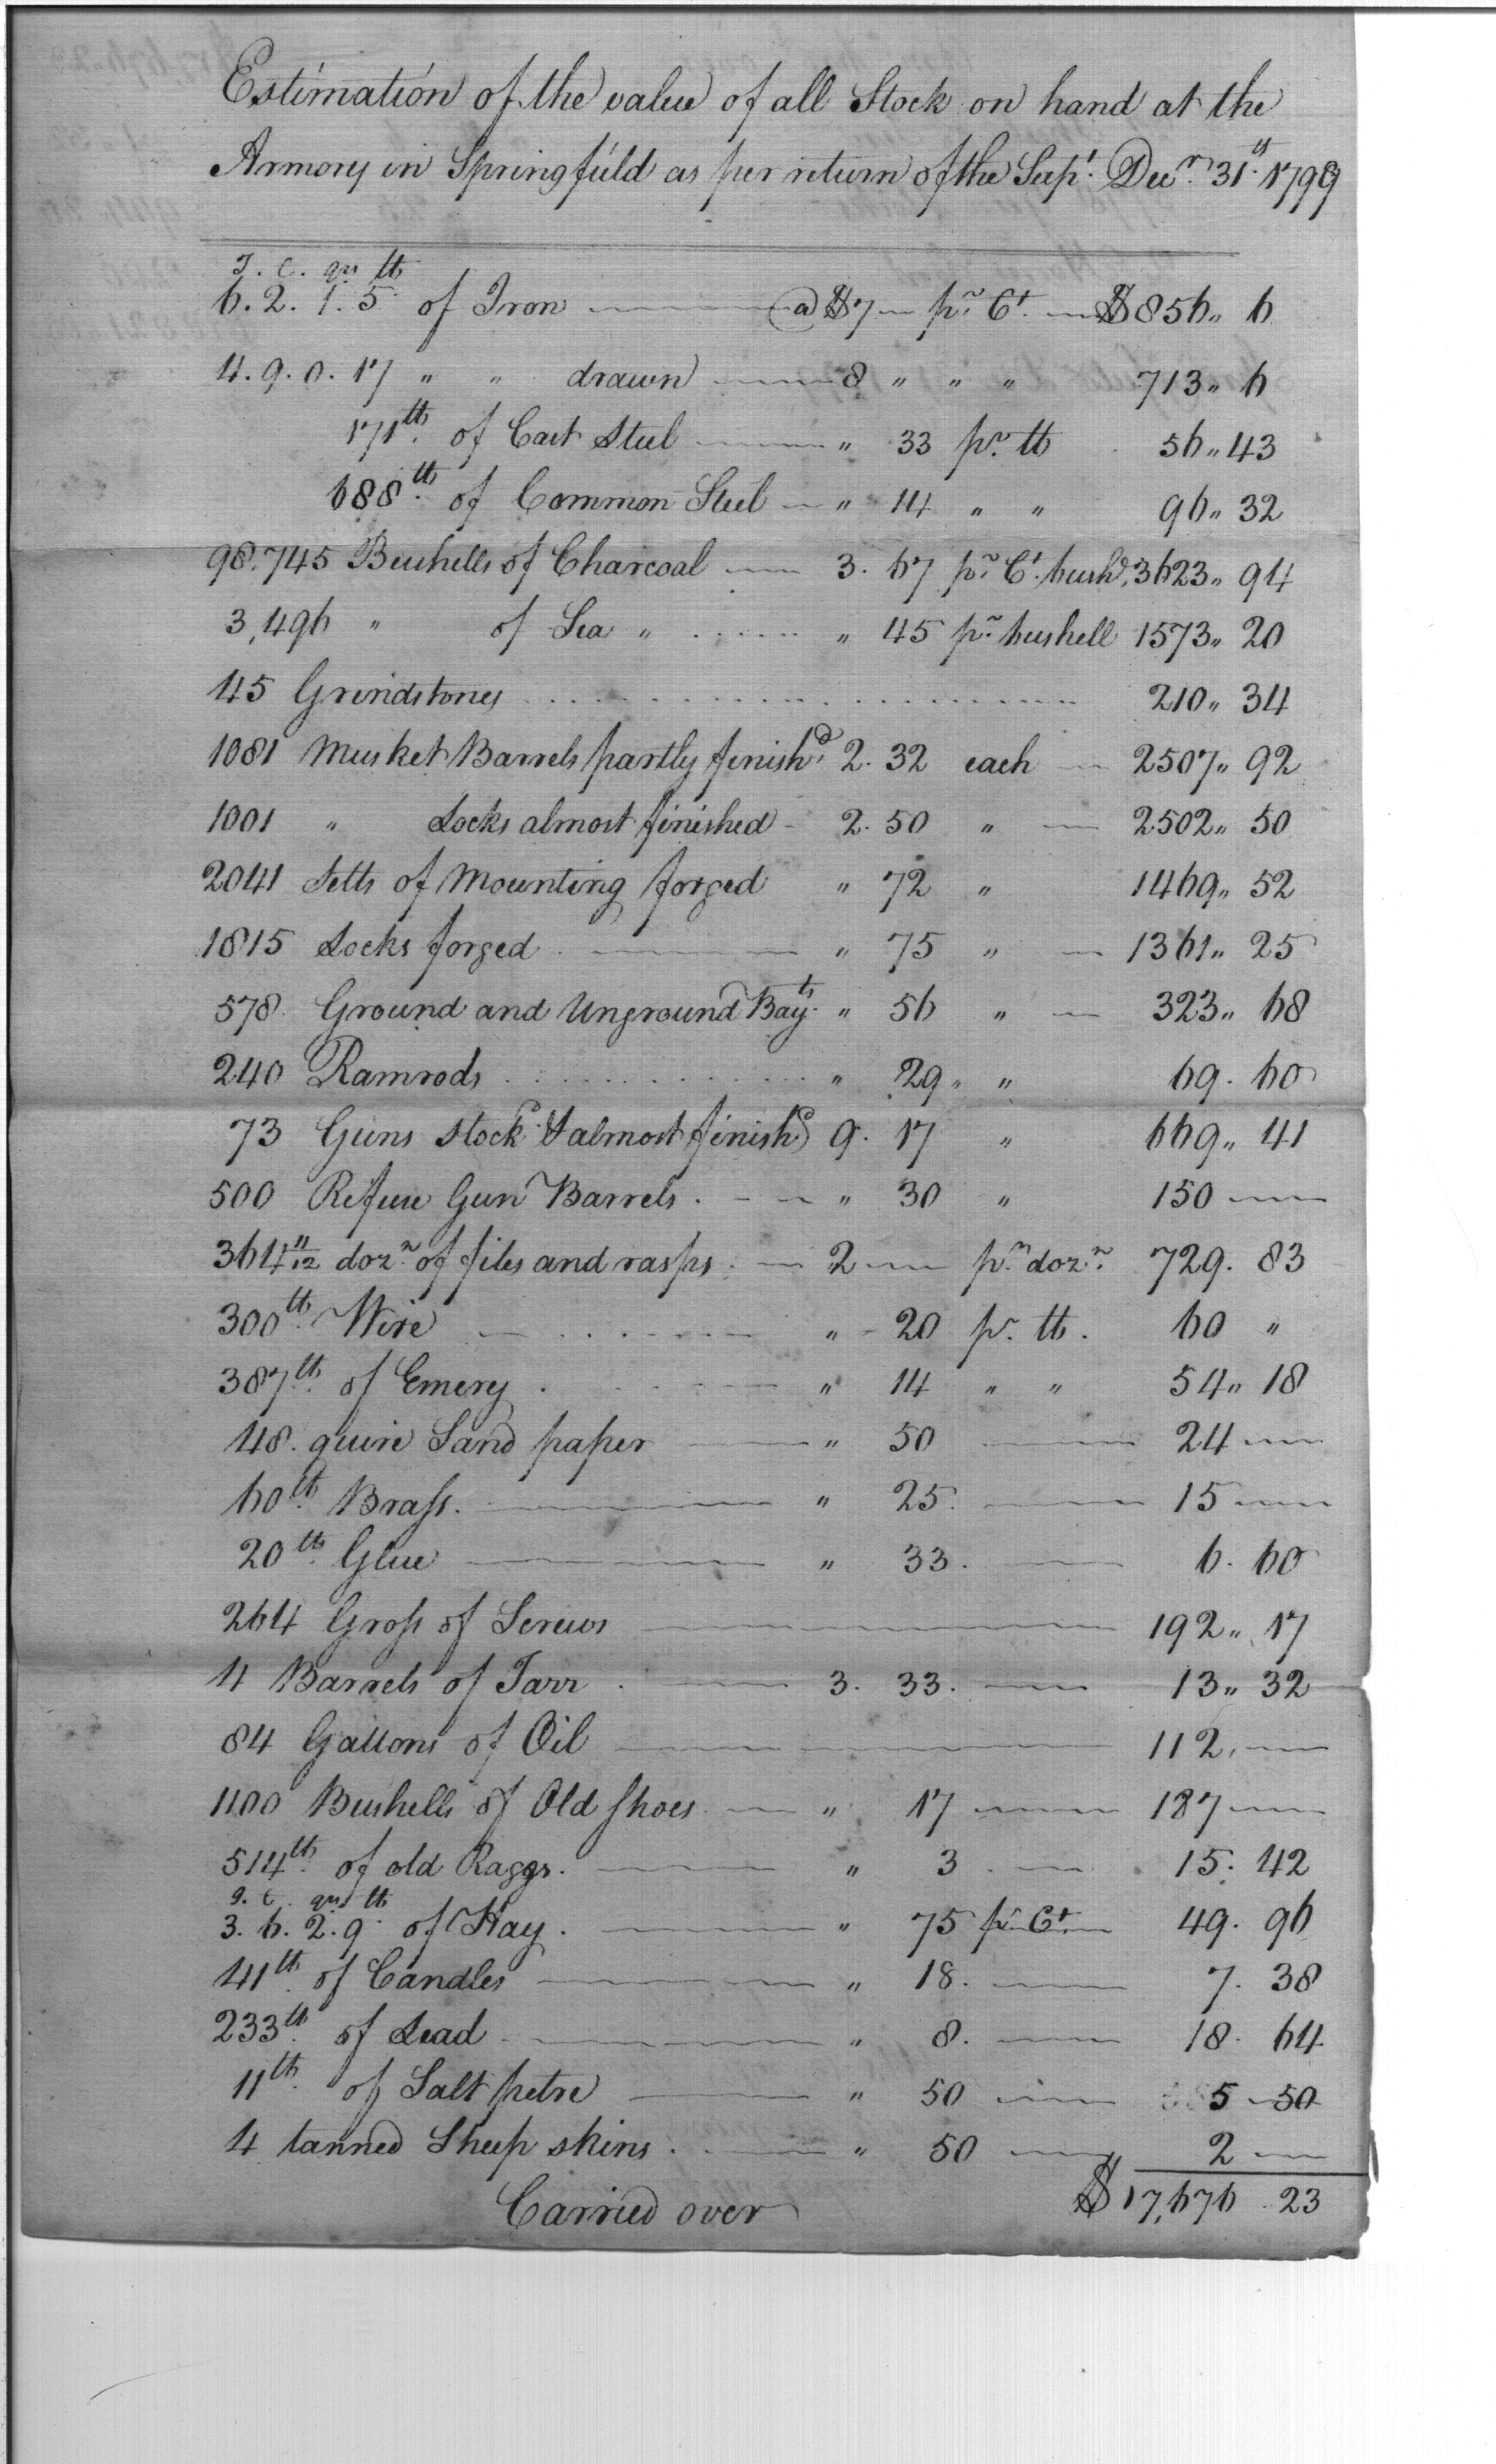 Estimation of the value of all Stock on hand at the
Armory in Springfield as per return of the Sup.t Decr. 31st 1799
T. C. qrs lb
6. 2. 1. 5 of Iron @ $7 — pr. Ct. — $856„ 6
4. 9. 0. 17 „ „ drawn — 8 „ „ „ 713„ 6
171lb. of Cast Steel — „ 33 pr. lb 56„ 43
688lb. of Common Steel — „ 14 „ „ 96„ 32
98,745 Bushells of Charcoal — 3. 67 pr. Ct. bushls. 3623„ 94
3,496 „ of Sea „ . . . . . „ 45 pr. bushell 1573„ 20
45 Grindstones . . . . . . . . . . 210„ 34
1081 Musket Barrels partly finishd. 2. 32 each — 2507„ 92
1001 „ Locks almost finished - 2. 50 „ — 2502„ 50
2041 Setts of Mounting forged „ 72 „ 1469„ 52
1815 Locks forged — „ 75 „ — 1361„ 25
578. Ground and Unground Bayts. „ 56 „ — 323„ 68
240 Ramrods . . . . . . . . „ 29 „ „ 69. 60
73 Guns stockd. & almost finishd 9. 17 „ 669„ 41
500 Refuse Gun Barrels. - — „ 30 „ 150 —
364 11/12 dozn. of files and rasps. — 2 — pr. dozn. 729. 83
300lb. Wire — . . . . . „ - 20 pr. lb. 60 „
387lb. of Emery . — „ 14 „ „ 54„ 18
48. quire Sand paper — „ 50 — 24 —
60lb. Brass. — „ 25. — 15 —
20lb. Glue — „ 33. — 6. 60
264 Gross of Screws — 192„ 17
4 Barrels of Tarr . — 3. 33. — 13„ 32
84 Gallons of Oil — 112. —
1100 Bushells of Old Shoes. — „ 17 — 187 —
514lb. of old Raggs. — „ 3 . — 15. 42
T. C. qrs lb
3. 6. 2. 9. of Hay. — „ 75 pr. Ct. — 49. 96
41lb. of Candles — „ 18. — 7. 38
233lb. of Lead — „ 8. — 18. 64
11lb. of Salt petre — „ 50 — 5 - 50
4 tanned Sheep skins. — „ 50 — 2 —
Carried over $17,676. 23